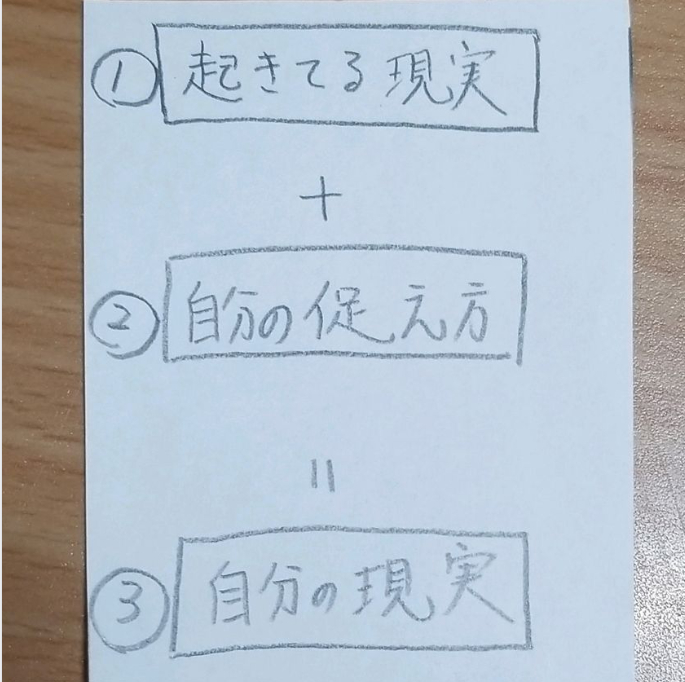 ① 起きてる現実
+
② 自分の促え方
=
③ 自分の現実